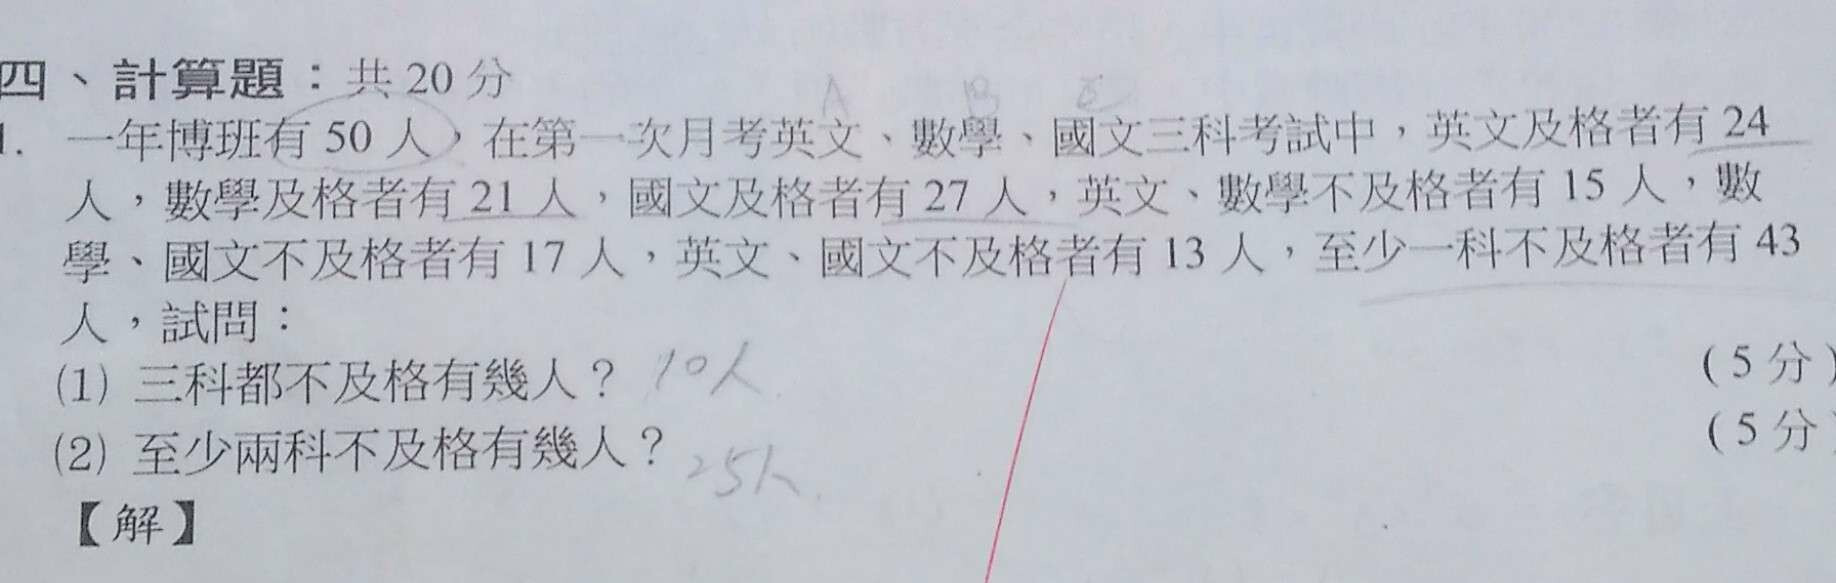 四、計算題：共 20 分
A B C
1. 一年博班有 50 人，在第一次月考英文、數學、國文三科考試中，英文及格者有 24
人，數學及格者有 21 人，國文及格者有 27 人，英文、數學不及格者有 15 人，數
學、國文不及格者有 17 人，英文、國文不及格者有 13 人，至少一科不及格者有 43
人，試問：
(1) 三科都不及格有幾人？ 10人 (5 分)
(2) 至少兩科不及格有幾人？ 25人 (5 分)
【解】